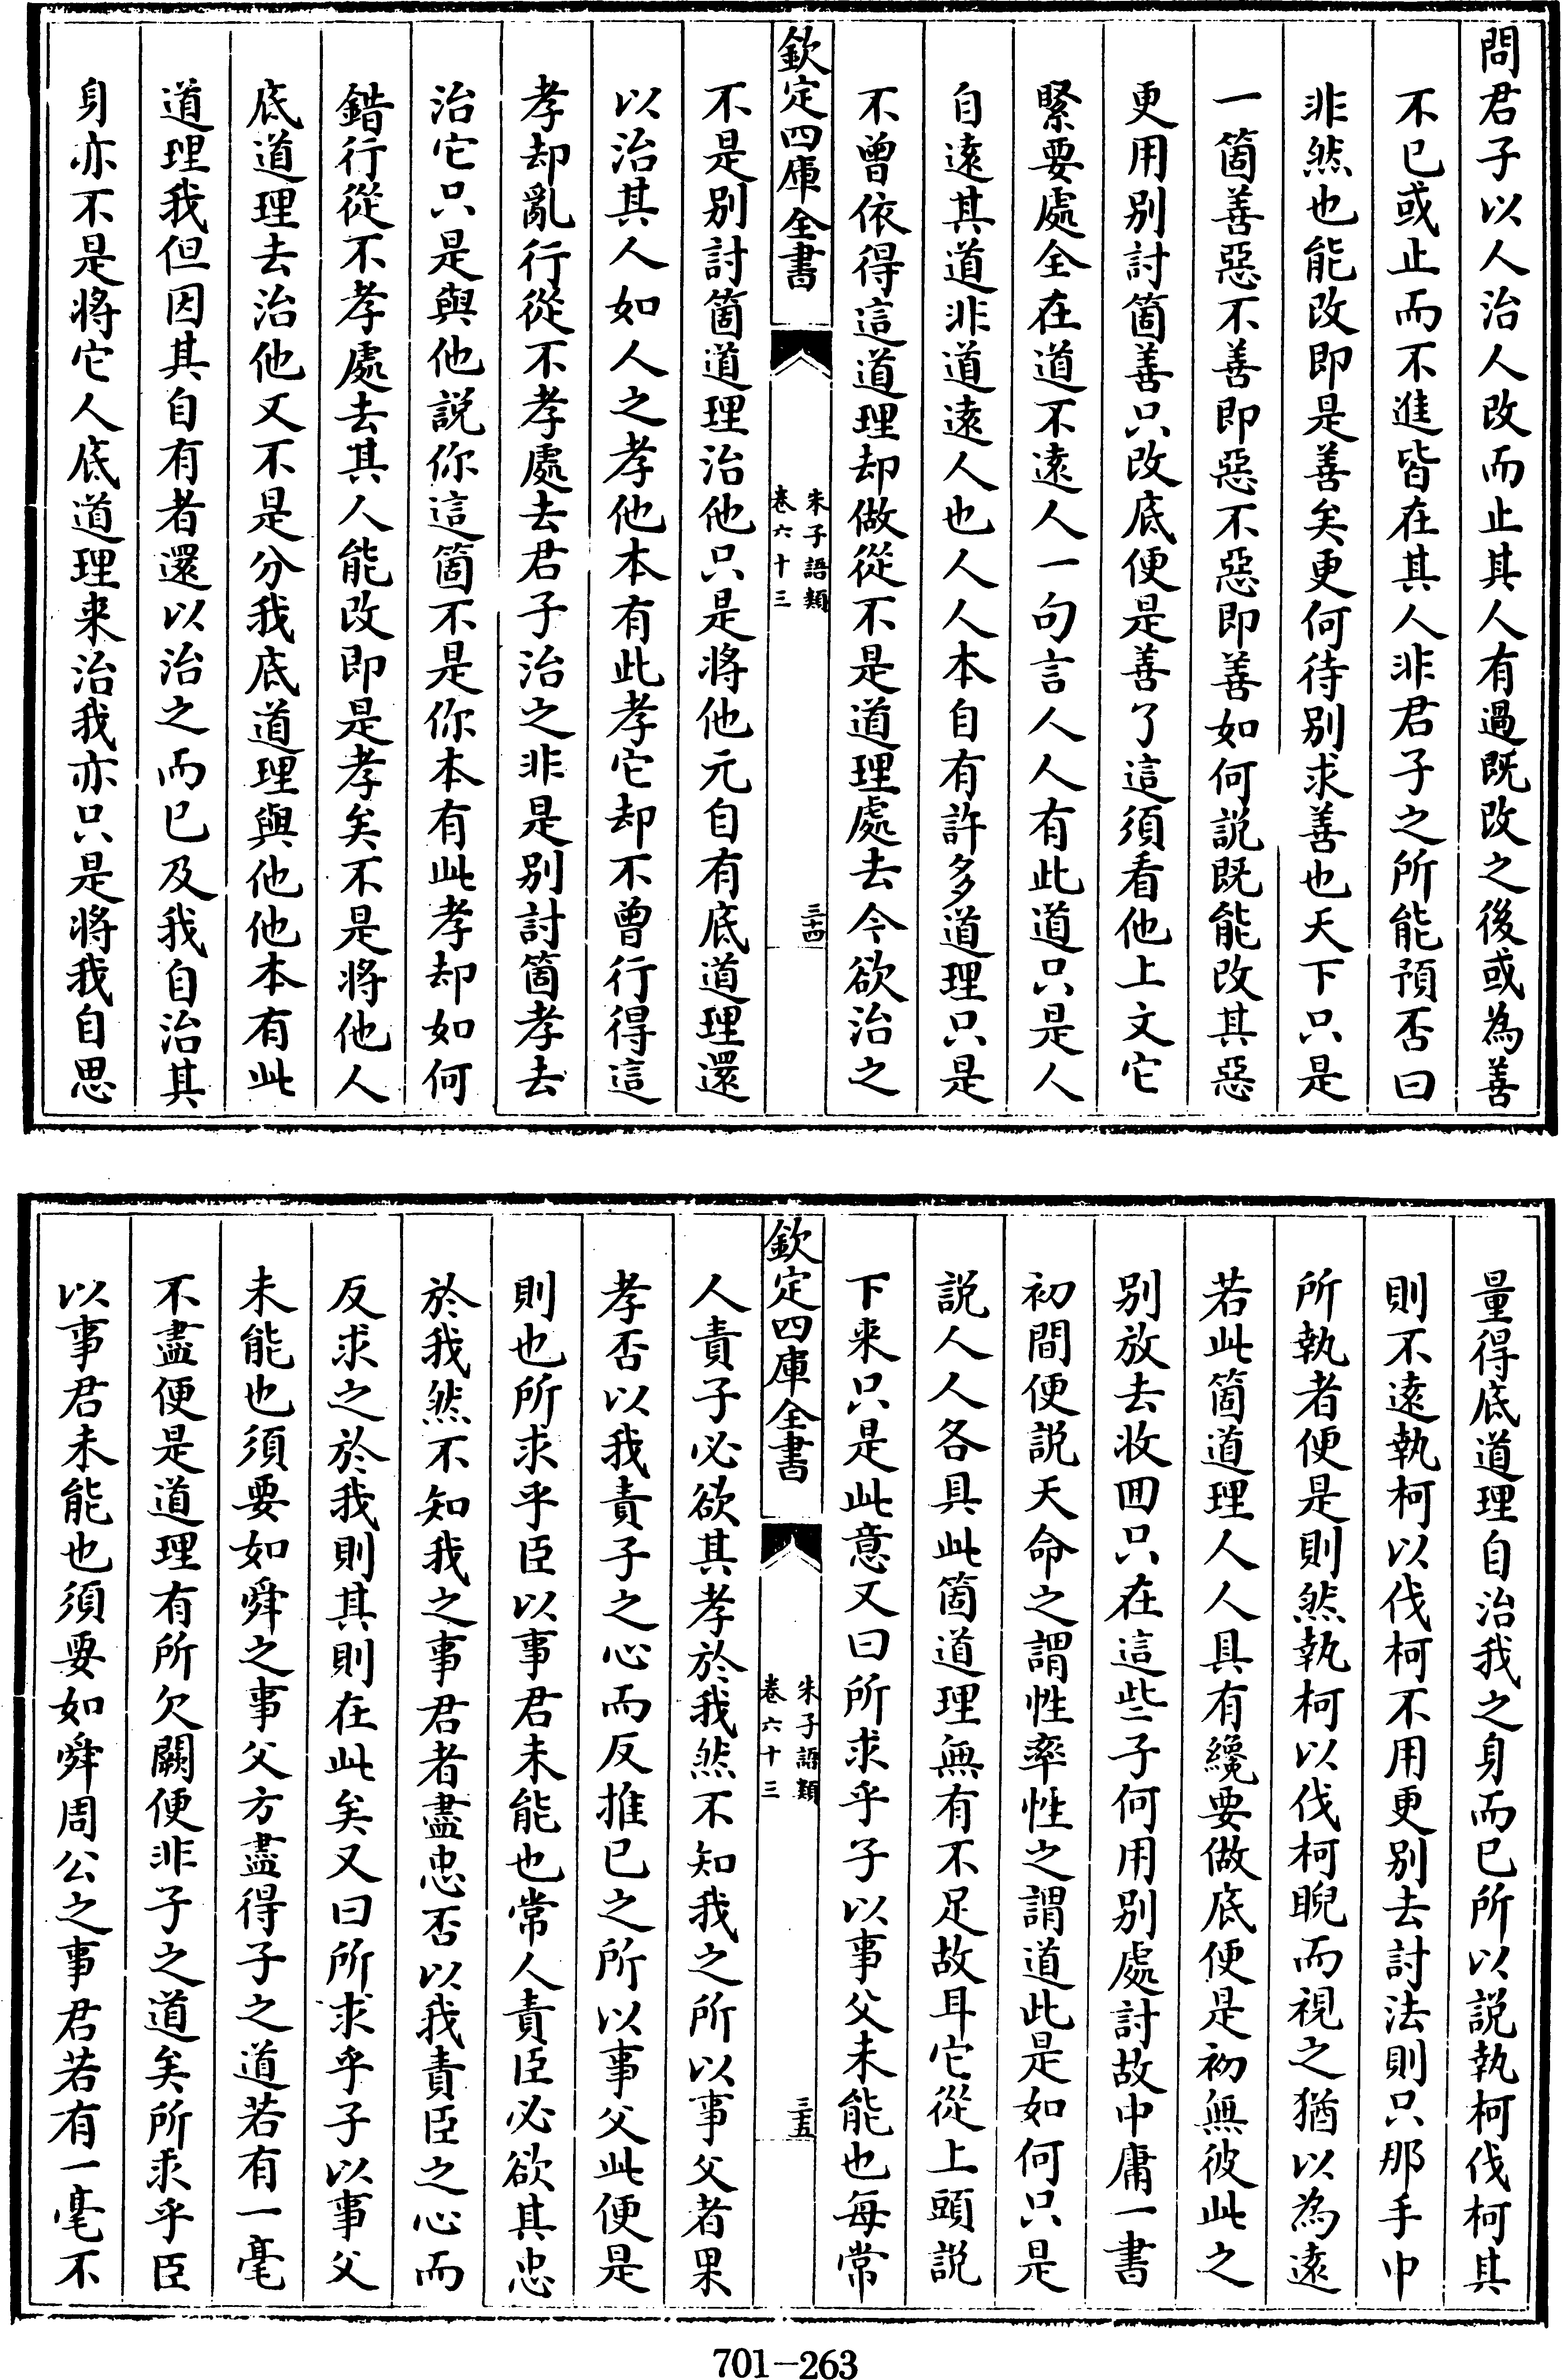 問君子以人治人改而止其人有過既改之後或為善
不已或止而不進皆在其人非君子之所能預否曰
非然也能改即是善矣更何待别求善也天下只是
一箇善惡不善即惡不惡即善如何説既能改其惡
更用别討箇善只改底便是善了這須看他上文它
緊要處全在道不逺人一句言人人有此道只是人
自逺其道非道逺人也人人本自有許多道理只是
不曾依得這道理却做從不是道理處去今欲治之
欽定四庫全書
朱子語類
卷六十三
三十四
不是别討箇道理治他只是將他元自有底道理還
以治其人如人之孝他本有此孝它却不曾行得這
孝却亂行從不孝處去君子治之非是别討箇孝去
治它只是與他説你這箇不是你本有此孝却如何
錯行從不孝處去其人能改即是孝矣不是將他人
底道理去治他又不是分我底道理與他他本有此
道理我但因其自有者還以治之而已及我自治其
身亦不是將它人底道理来治我亦只是將我自思
量得底道理自治我之身而已所以説執柯伐柯其
則不逺執柯以伐柯不用更别去討法則只那手中
所執者便是則然執柯以伐柯睨而視之猶以為逺
若此箇道理人人具有纔要做底便是初無彼此之
别放去收囬只在這些子何用别處討故中庸一書
初間便説天命之謂性率性之謂道此是如何只是
説人人各具此箇道理無有不足故耳它從上頭説
下来只是此意又曰所求乎子以事父未能也每常
欽定四庫全書
朱子語類
卷六十三
三十五
人責子必欲其孝於我然不知我之所以事父者果
孝否以我責子之心而反推己之所以事父此便是
則也所求乎臣以事君未能也常人責臣必欲其忠
於我然不知我之事君者盡忠否以我責臣之心而
反求之於我則其則在此矣又曰所求乎子以事父
未能也須要如舜之事父方盡得子之道若有一毫
不盡便是道理有所欠闕便非子之道矣所求乎臣
以事君未能也須要如舜周公之事君若有一毫不
701—263